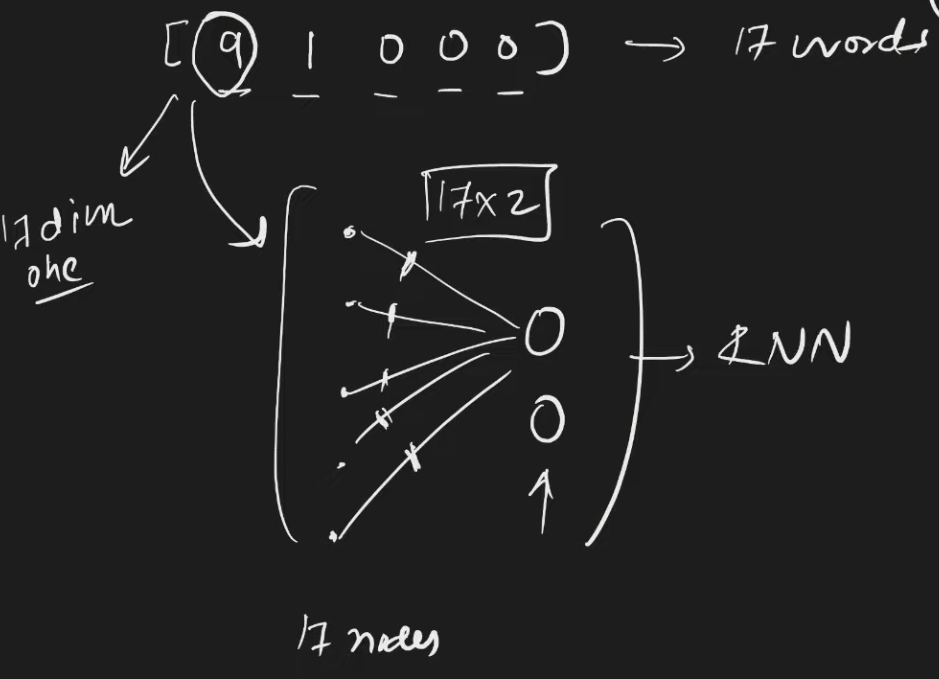 [ 9 1 0 0 0 ] → 17 words
17 dim
ohe
17x2
→ RNN
17 nodes